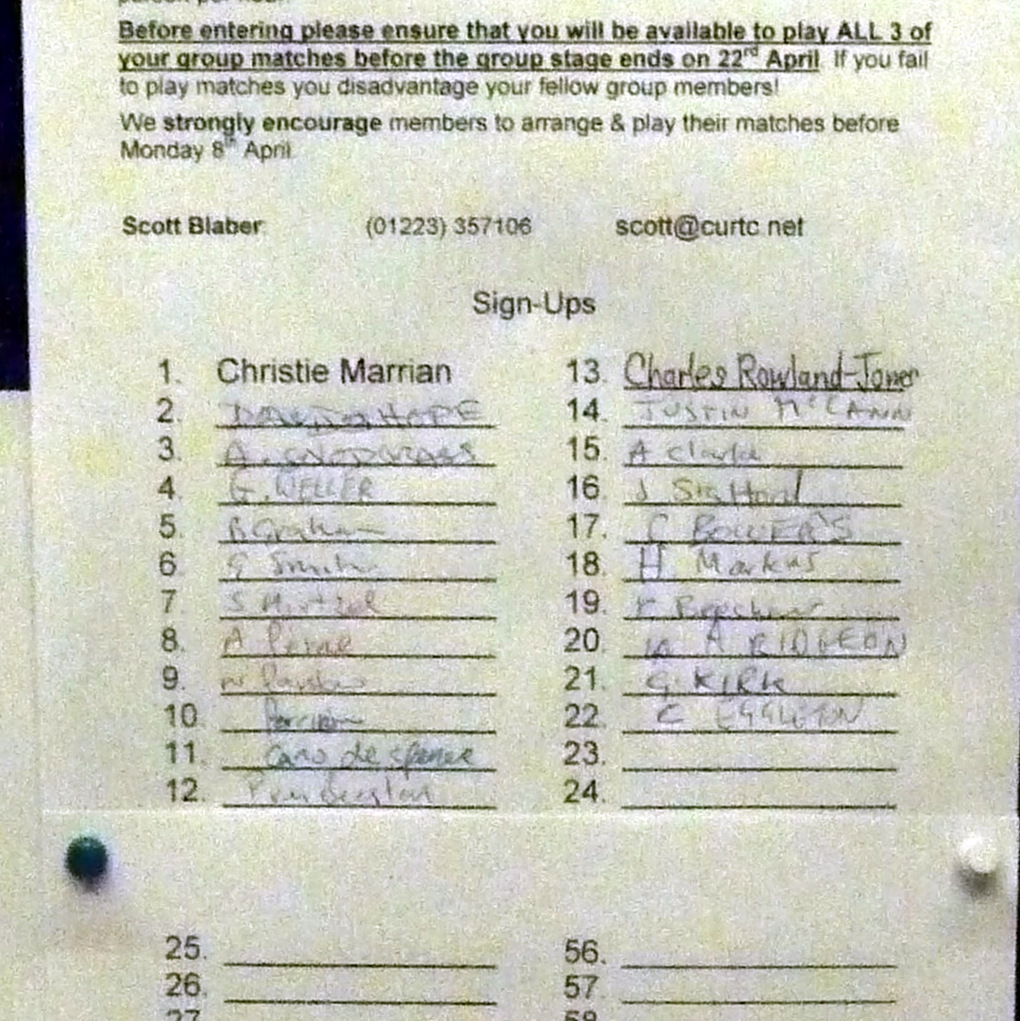 person per hour.
Before entering please ensure that you will be available to play ALL 3 of
your group matches before the group stage ends on 22rd April. If you fail
to play matches you disadvantage your fellow group members!
We strongly encourage members to arrange & play their matches before
Monday 8th April.
Scott Blaber (01223) 357106 scott@curtc.net
Sign-Ups
1. Christie Marrian
2. HOPE
3. A.
4. G. WELLER
5. B Graham
6. G Smith
7. S Hirtzel
8. A
9.
10.
11. Caro de
12.
13. Charles Rowland-Jones
14. JUSTIN McCANN
15. A Clarke
16. J
17. C BOWERS
18. H Markus
19.
20. A RIDGEON
21. G. KIRK
22. C EGGLETON
23.
24.
25.
26.
27.
56.
57.
58.